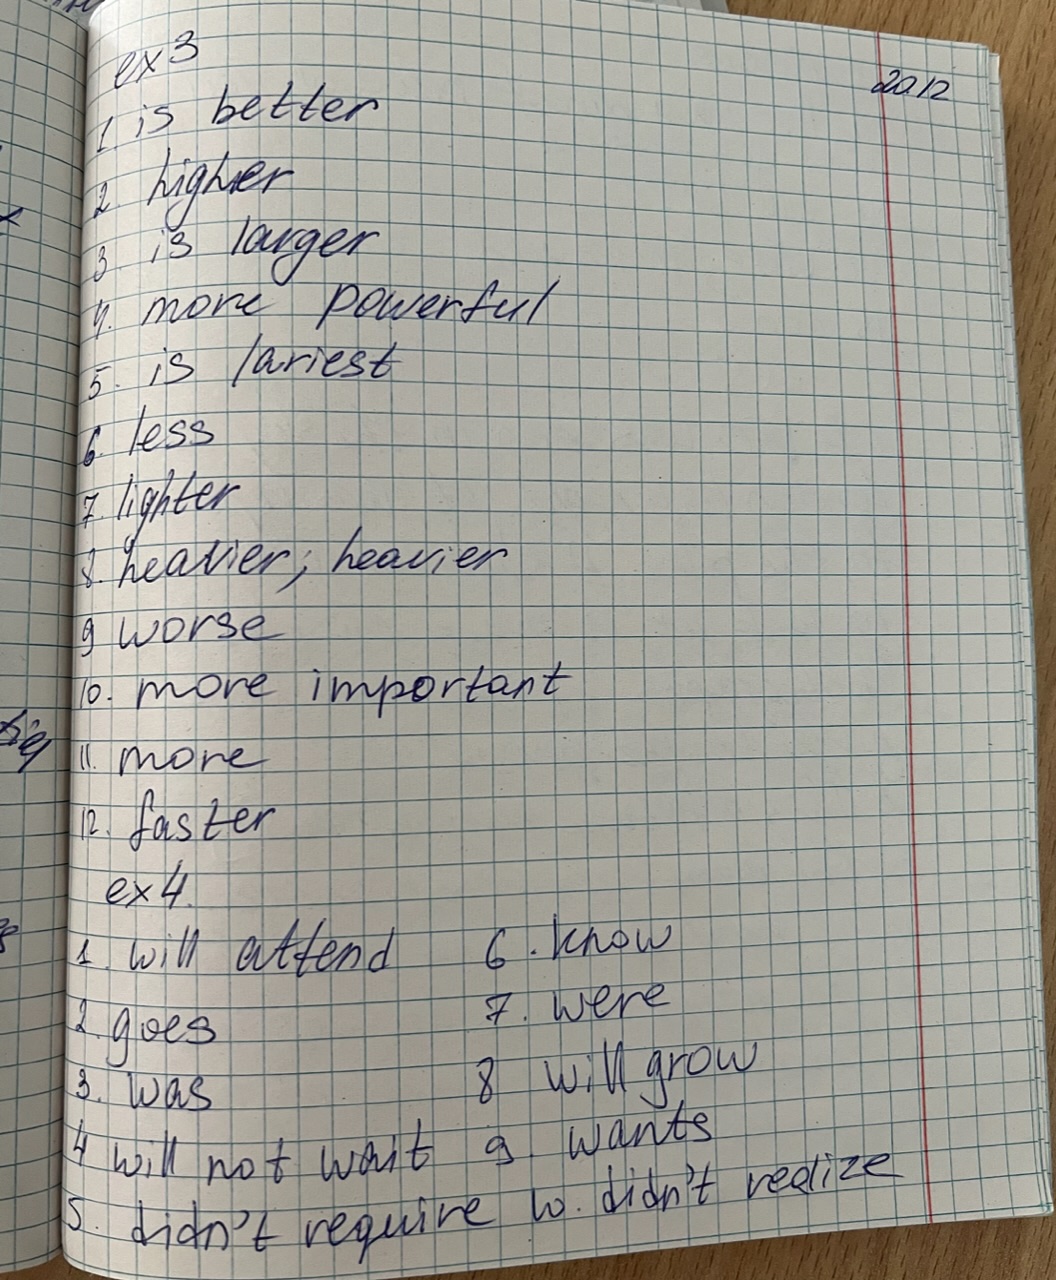 ex3
2012
1. is better
2. higher
3. is larger
4. more powerful
5. is lariest
6. less
7. lighter
8. heavier; heavier
9 worse
10. more important
11. more
12. faster
ex4.
1. will attend
2. goes
3. was
4 will not wait
5. didn't require
6. know
7. were
8 will grow
9. wants
10. didn't realize